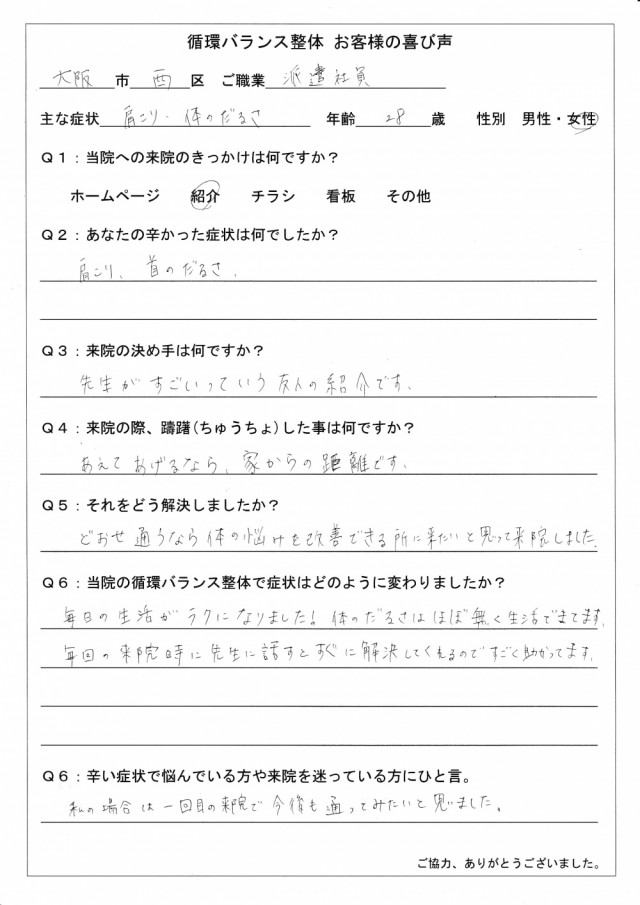 循環バランス整体 お客様の喜び声
大阪市 西区 ご職業 派遣社員
主な症状 肩こり・体のだるさ 年齢 28 歳 性別 男性・女性
Q1：当院への来院のきっかけは何ですか？
ホームページ 紹介 チラシ 看板 その他
Q2：あなたの辛かった症状は何でしたか？
肩こり、首のだるさ、
Q3：来院の決め手は何ですか？
先生がすごいっていう友人の紹介です。
Q4：来院の際、躊躇(ちゅうちょ)した事は何ですか？
あえてあげるなら、家からの距離です。
Q5：それをどう解決しましたか？
どおせ通うなら体の悩みを改善できる所に来たいと思って来院しました。
Q6：当院の循環バランス整体で症状はどのように変わりましたか？
毎日の生活がラクになりました！体のだるさはほぼ無く生活できてます。
毎回の来院時に先生に話すとすぐに解決してくれるのですごく助かってます。
Q6：辛い症状で悩んでいる方や来院を迷っている方にひと言。
私の場合は一回目の来院で今後も通ってみたいと思いました。
ご協力、ありがとうございました。